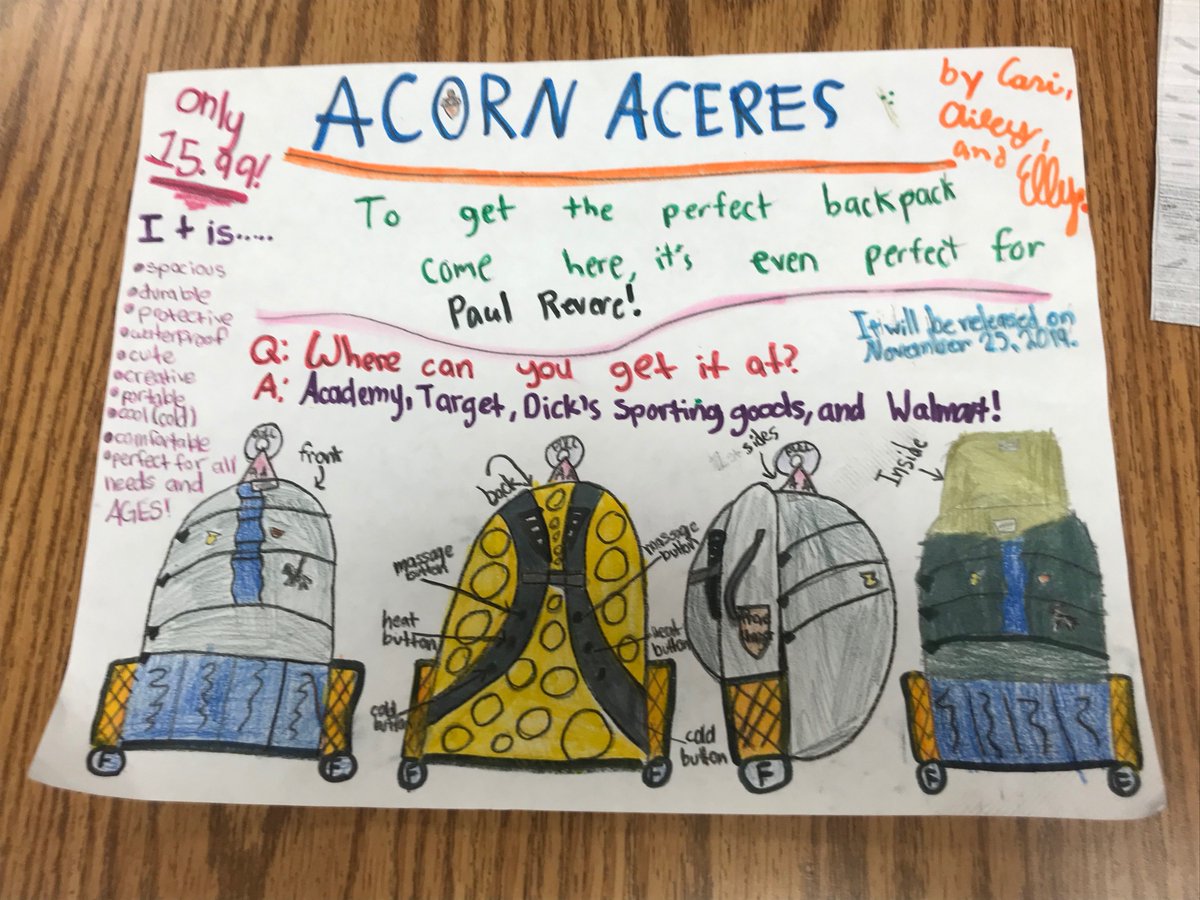 only
15.99!
ACORN ACERES
by Cari,
Ailey,
and
Elly
To get the perfect backpack
come here, it's even perfect for
Paul Revere!
It is.....
•spacious
•durable
•protective
•waterproof
•cute
•creative
•portable
•cool(cold)
•comfortable
•perfect for all
needs and
AGES!
It will be released on
November 25, 2019.
Q: Where can you get it at?
A: Academy, Target, Dick's Sporting goods, and Walmart!
front
back
massage
button
heat
button
cold
button
massage
button
heat
button
cold
button
sides
Inside
F
F
F
F
F
F
F